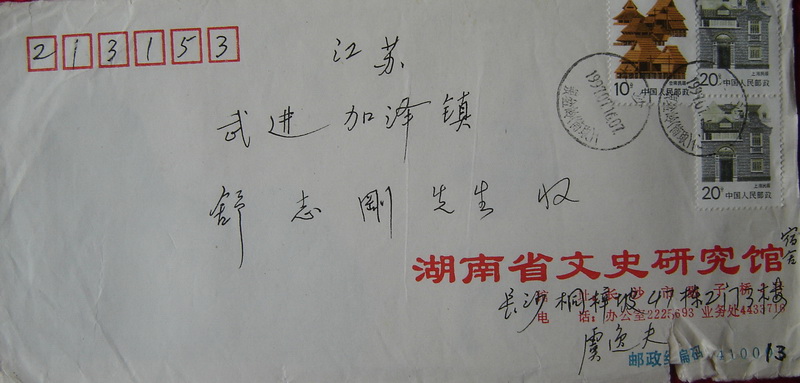 213153
江苏
武进 加泽镇
舒志刚先生 收
10分 中国人民邮政
20分 上海民居 中国人民邮政
20分 上海民居
中国人民邮政
湖南省文史研究馆
宿舍
长沙桐梓坡47栋2门3楼
电 话:办公室2225693 业务处4433716
虞逸夫
邮政编码 410013